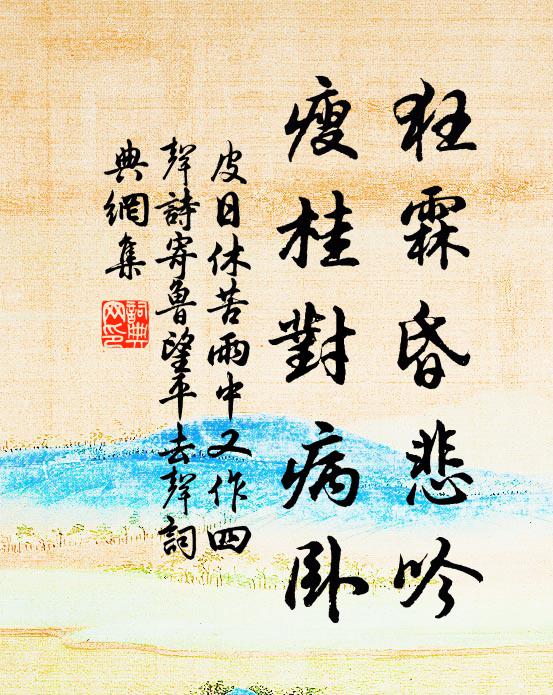 狂霖昏悲吟
瘦桂對病臥
皮日休苦雨中又作四
聲詩寄魯望平去聲詞
典網集
詞典
网印